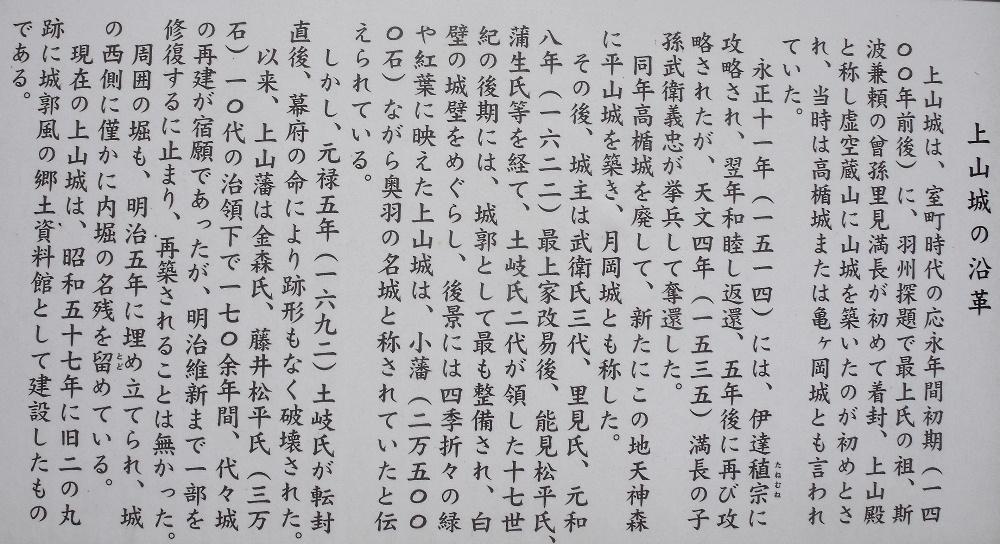 上山城の沿革
上山城は、室町時代の応永年間初期（一四
〇〇年前後）に、羽州探題で最上氏の祖、斯
波兼頼の曾孫里見満長が初めて着封、上山殿
と称し虚空蔵山に山城を築いたのが初めとさ
れ、当時は高楯城または亀ヶ岡城とも言われ
ていた。
永正十一年（一五一四）には、伊達稙宗に
たねむね
攻略され、翌年和睦し返還、五年後に再び攻
略されたが、天文四年（一五三五）満長の子
孫武衛義忠が挙兵して奪還した。
同年高楯城を廃して、新たにこの地天神森
に平山城を築き、月岡城とも称した。
その後、城主は武衛氏三代、里見氏、元和
八年（一六二二）最上家改易後、能見松平氏、
蒲生氏等を経て、土岐氏二代が領した十七世
紀の後期には、城郭として最も整備され、白
壁の城壁をめぐらし、後景には四季折々の緑
や紅葉に映えた上山城は、小藩（二万五〇〇
〇石）ながら奥羽の名城と称されていたと伝
えられている。
しかし、元禄五年（一六九二）土岐氏が転封
直後、幕府の命により跡形もなく破壊された。
以来、上山藩は金森氏、藤井松平氏（三万
石）一〇代の治領下で一七〇余年間、代々城
の再建が宿願であったが、明治維新まで一部を
修復するに止まり、再築されることは無かった。
周囲の堀も、明治五年に埋め立てられ、城
の西側に僅かに内堀の名残を留めている。
とど
現在の上山城は、昭和五十七年に旧二の丸
跡に城郭風の郷土資料館として建設したもの
である。